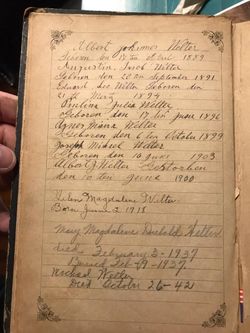 Albert johannes Welter
Geboren den 18ten April 1889
Augustin Jacob Welter
Geboren den 20 en September 1891
Eduard Leo Welter Geboren den
21th März 1894
Paulina Julia Welter
Geboren den 17 ten June 1896
Agnes Maria Welter
Geboren den 6 ten October 1899
Joseph Michael Welter
Geboren den 10 June 1903
Albert Welter Gestorben
den ten June 1900
Helen Magdalena Welter
Born June 2 1918
Mary Magdalene Welter
died February 5-1937
Buried Feb-9-1937
Michael Welter
Died October 26-42